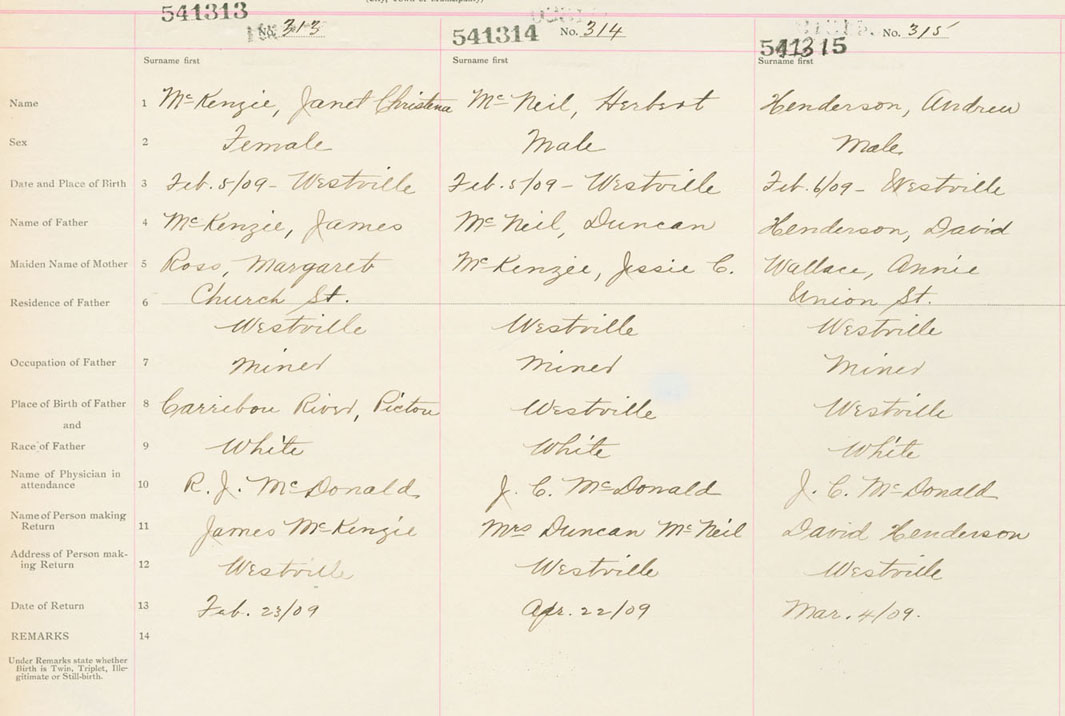 (City, Town or Municipality)
541313 No. 313
541314 No. 314
541315 No. 315
Surname first Surname first Surname first
Name 1 McKenzie, Janet Christena McNeil, Herbert Henderson, Andrew
Sex 2 Female Male Male
Date and Place of Birth 3 Feb. 5/09 - Westville Feb. 5/09 - Westville Feb. 6/09 - Westville
Name of Father 4 McKenzie, James McNeil, Duncan Henderson, David
Maiden Name of Mother 5 Ross, Margaret McKenzie, Jessie C. Wallace, Annie
Residence of Father 6 Church St. Union St.
Westville Westville Westville
Occupation of Father 7 Miner Miner Miner
Place of Birth of Father 8 Carribou River, Pictou Westville Westville
and
Race of Father 9 White White White
Name of Physician in
attendance 10 R. J. McDonald J. C. McDonald J. C. McDonald
Name of Person making
Return 11 James McKenzie Mrs Duncan McNeil David Henderson
Address of Person mak-
ing Return 12 Westville Westville Westville
Date of Return 13 Feb. 23/09 Apr. 22/09 Mar. 4/09.
REMARKS 14
Under Remarks state whether
Birth is Twin, Triplet, Ille-
gitimate or Still-birth.